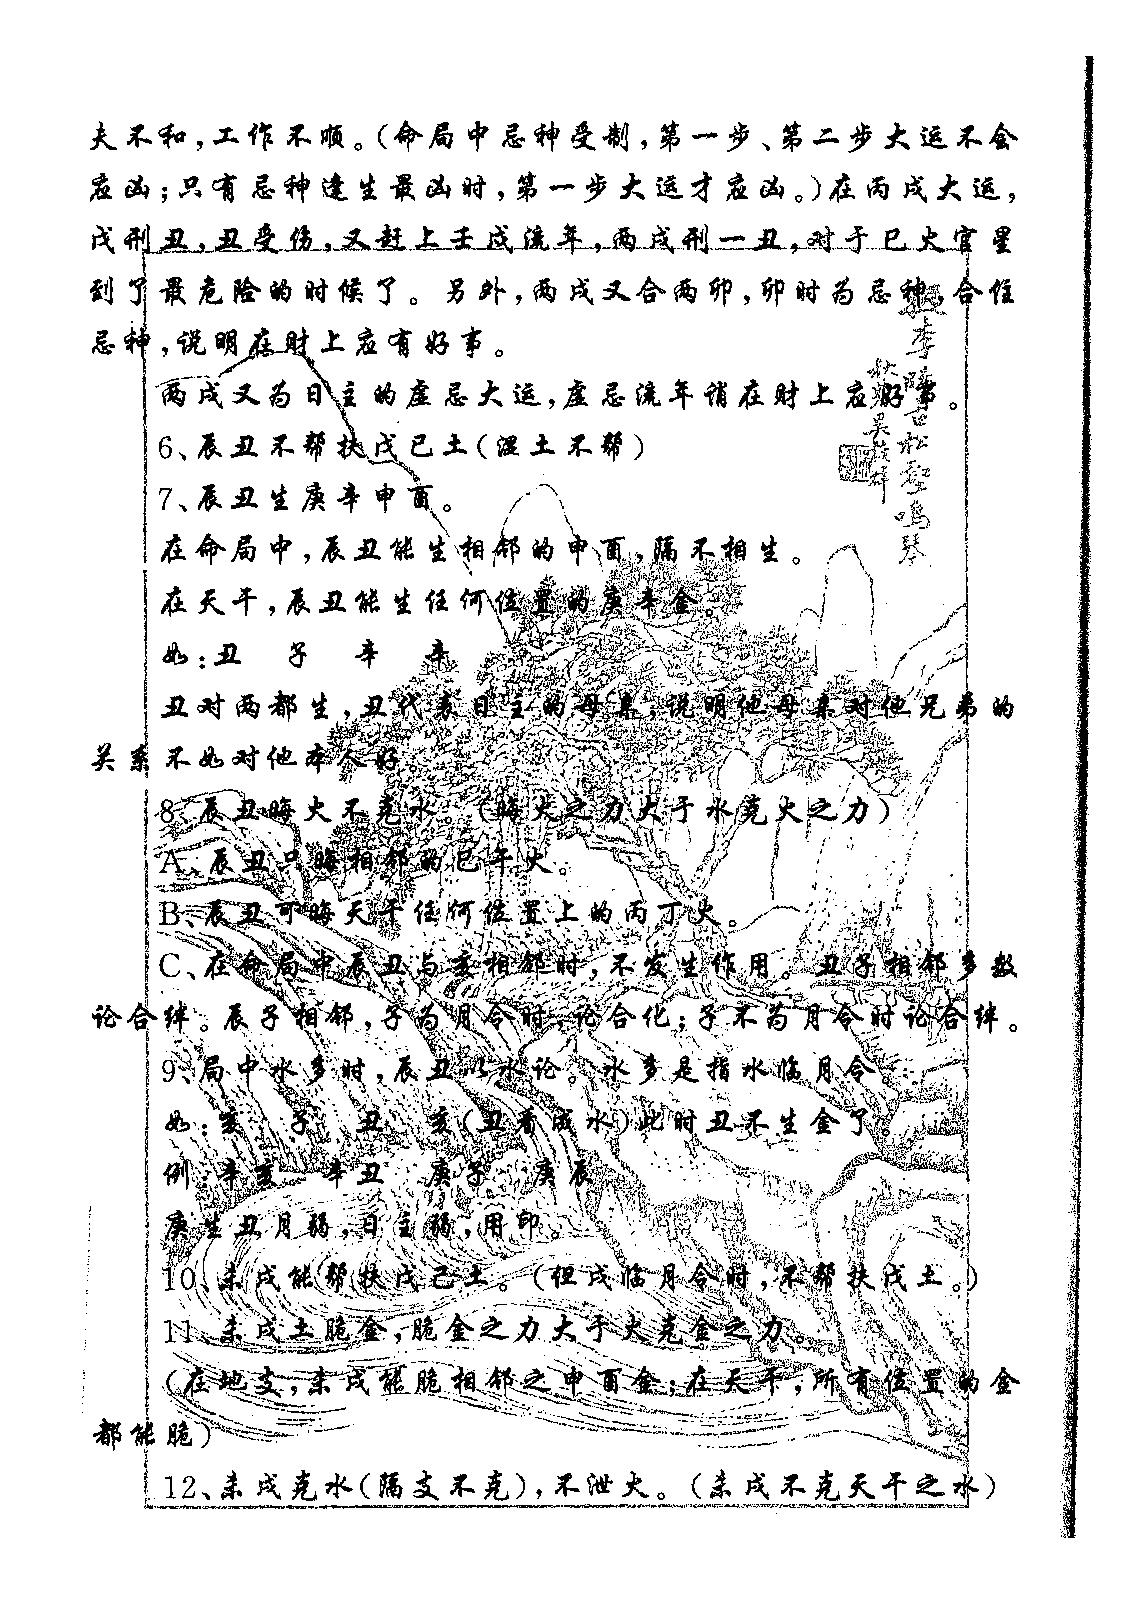 夫不和,工作不顺。(命局中忌神受制,第一步、第二步大运不会
应凶;只有忌神逢生最凶时,第一步大运才应凶。)在丙戌大运,
戌刑丑,丑受伤,又赶上壬戌流年,两戌刑一丑,对于巳火官星
到了最危险的时候了。另外,两戌又合两卯,卯时为忌神,合住
忌神,说明在财上应有好事。
两戌又为日主的虚忌大运,虚忌流年谓在财上应好事。
6、辰丑不帮扶戊己土(湿土不帮)
7、辰丑生庚辛申酉。
在命局中,辰丑能生相邻的申酉,隔不相生。
在天干,辰丑能生任何位置的庚辛金。
如:丑 子 辛 辛
丑对两都生,丑代表日主的母亲,说明他母亲对他兄弟的
关系不如对他本人好。
8、辰丑晦火不克水。(晦火之力大于水克火之力)
A、辰丑只晦相邻的巳午火。
B、辰丑可晦天干任何位置上的丙丁火。
C、在命局中辰丑与亥相邻时,不发生作用。丑子相邻多数
论合绊。辰子相邻,子为月令时,论合化;子不为月令时论合绊。
9、局中水多时,辰丑以水论。水多是指水临月令。
如:亥 子 丑 亥(丑看成水)此时丑不生金了。
例:辛亥 辛丑 庚子 庚辰
庚生丑月弱,日主弱,用印。
10、未戌能帮扶戊己土。(但戌临月令时,不帮扶戊土。)
11、未戌土脆金,脆金之力大于火克金之力。
(在地支,未戌能脆相邻之申酉金;在天干,所有位置的金
都能脆)
12、未戌克水(隔支不克),不泄火。(未戌不克天干之水)
松壑鸣琴